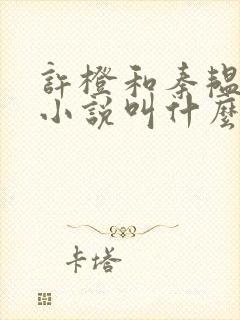 許橙和秦韞
小說叫什麼
卡塔